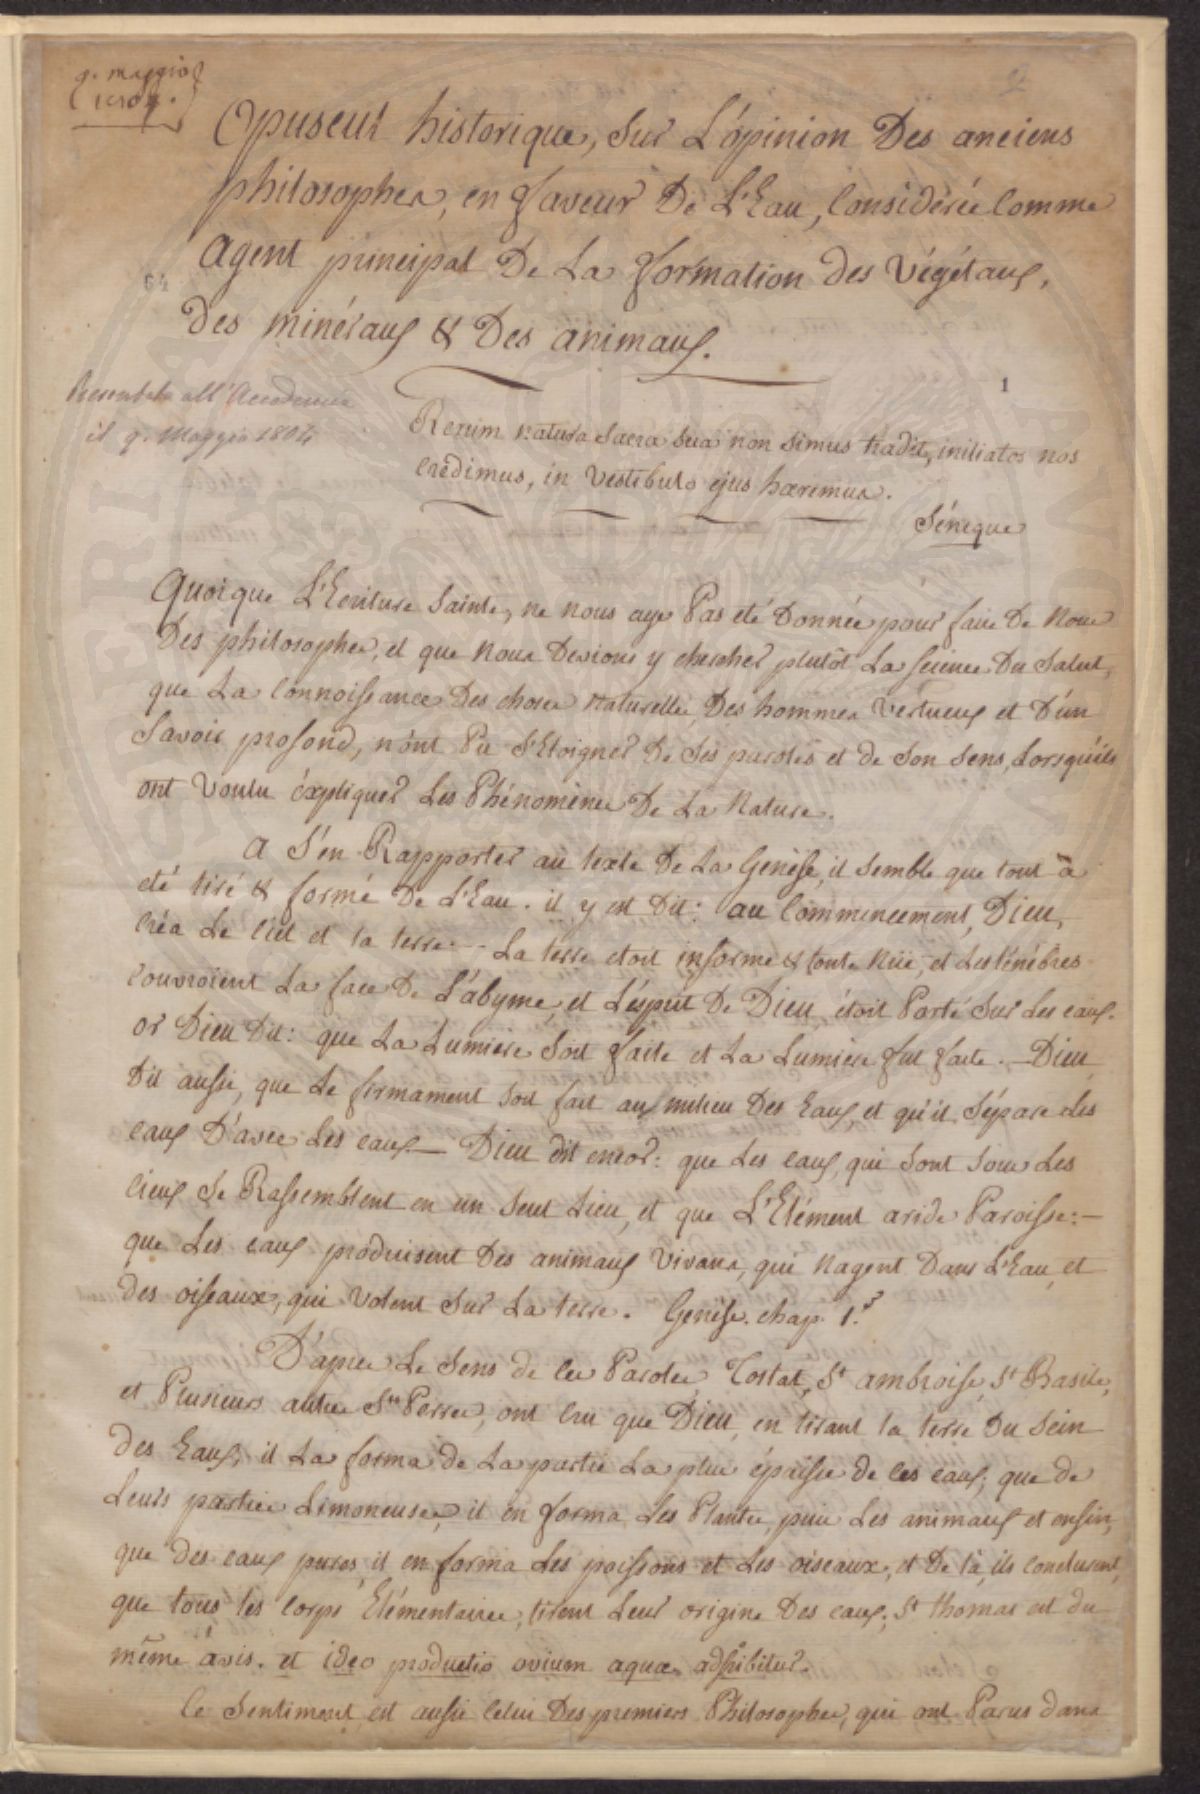 9. maggio
1804.
Opuscul historique, sur L'opinion Des anciens
philosophes, en faveur De L'Eau, Considérée Comme
Agent principal De La formation des Végétaux,
64
des minéraux & Des animaux.
1
Presentata all'Accademia
il 9. Maggio 1804
Rerum natura sacra sua non simus tradit, initiatos nos
credimus, in Vestibulo ejus hæremus.
Sénèque
Quoique L'Ecriture Sainte, ne nous aye Pas été Donnée pour faire De Nous
Des philosophes, et que Nous Devions y chercher plutôt La science Du Salut,
que La Connoissance Des choses Naturelles, Des hommes Vertueux et D'un
Savoir profond, n'ont Pu S'Eloigner De Ses paroles et de Son Sens, Lorsqu'ils
ont Voulu éxpliquer Les Phénomènes De La Nature.
A S'en Rapporter au texte De La Genèse, il semble que tout à
été tiré & formé De L'Eau. il y est Dit: au Commencement, Dieu,
Créa Le Ciel et la terre. - La terre etoit informe & toute Nüe, et Les ténébres
Couvroient La face De L'abyme, et L'ésprit De Dieu, étoit Porté Sur Les eaux.
or Dieu Dit: que La Lumiere Soit faite et La Lumiere fut faite. — Dieu
Dit aussi, que Le firmament Soit fait au milieu Des Eaux, et qu'il Sépare Les
eaux D'avec Les eaux — Dieu dit encor: que Les eaux, qui Sont Sous Les
Cieux Se Rassemblent en un Seul Lieu, et que L'Elément aride Paroisse: —
que Les eaux produisent Des animaux Vivans, qui Nagent Dans L'Eau, et
des oiseaux, qui Volent Sur La terre. Genèse. chap. 1.r
D'après Le Sens de ces Paroles Tostat, St ambroise, St Basile,
et Plusieurs autres Sts Peres, ont Cru que Dieu, en tirant la terre Du Sein
des Eaux, il La forma de La partie La plus épaisse de Ces eaux; que de
Leurs parties Limoneuses, il en forma Les Plantes, puis Les animaux et enfin,
que des eaux pures, il en forma Les poissons et Les oiseaux, et De là, ils Conclurent,
que tous les Corps Elémentaires, tirent Leur origine Des eaux; St thomas est du
même avis. et ideo productio avium aquæ adhibitur.
Ce Sentiment est aussi Celui Des premiers Philosophes, qui ont Parus dans